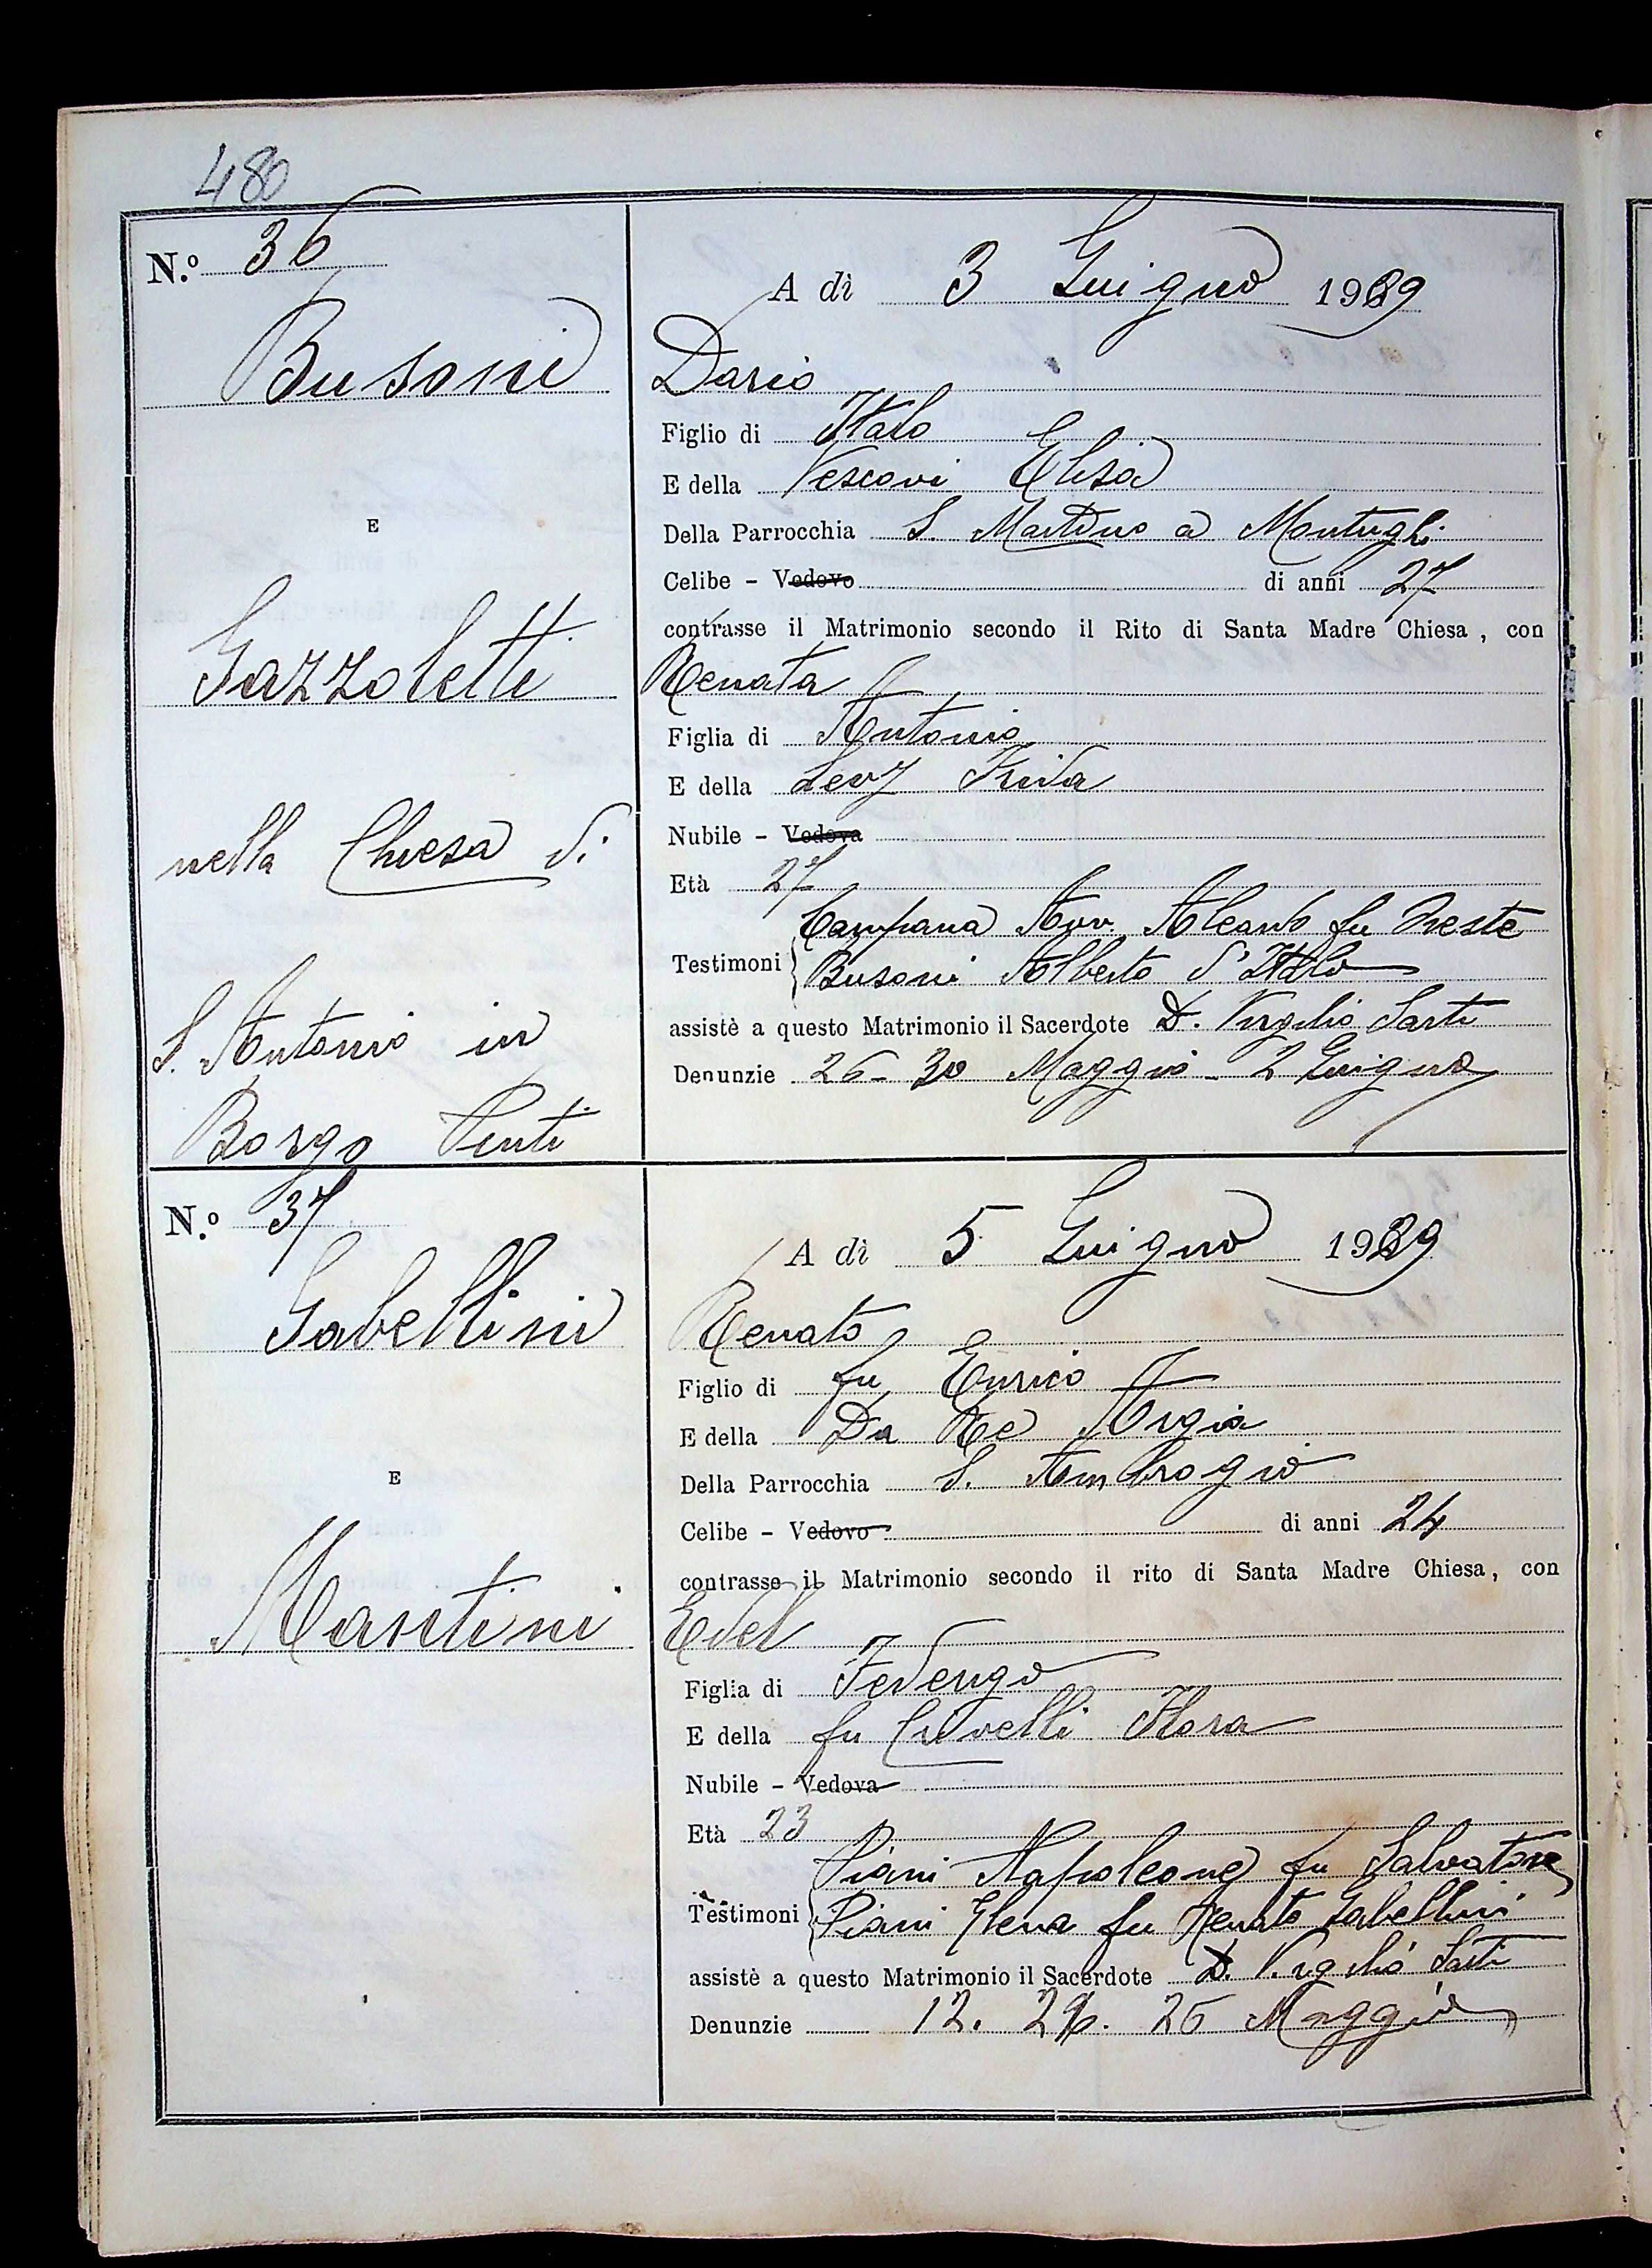 480
N.º 36
A dì 3 Giugno 1939
Busoni
Dario
Figlio di Italo
E della Vescovi Elisa
E
Della Parrocchia S. Martino a Montughi
Celibe - Vedovo di anni 27
contrasse il Matrimonio secondo il Rito di Santa Madre Chiesa, con
Gazzoletti
Renata
Figlia di Antonio
E della Levy Frida
Nubile - Vedova
nella Chiesa di
Età 27
Campana Avv. Aleardo fu Oreste
Testimoni
Busoni Alberto d'Italo
S. Antonio in
assistè a questo Matrimonio il Sacerdote D. Virgilio Sarti
Denunzie 26 - 30 Maggio - 2 Giugno
Borgo Pinti
N.º 37
A dì 5 Giugno 1939
Gabellini
Renato
Figlio di fu Enrico
E della Da Re Argia
E
Della Parrocchia S. Ambrogio
Celibe - Vedovo di anni 24
contrasse il Matrimonio secondo il rito di Santa Madre Chiesa, con
Martini
Edel
Figlia di Federigo
E della fu Crivelli Flora
Nubile - Vedova
Età 23
Piani Napoleone fu Salvatore
Testimoni
Piani Elena fu Renato Gabellini
assistè a questo Matrimonio il Sacerdote D. Virgilio Sarti
Denunzie 12. 26 Maggio